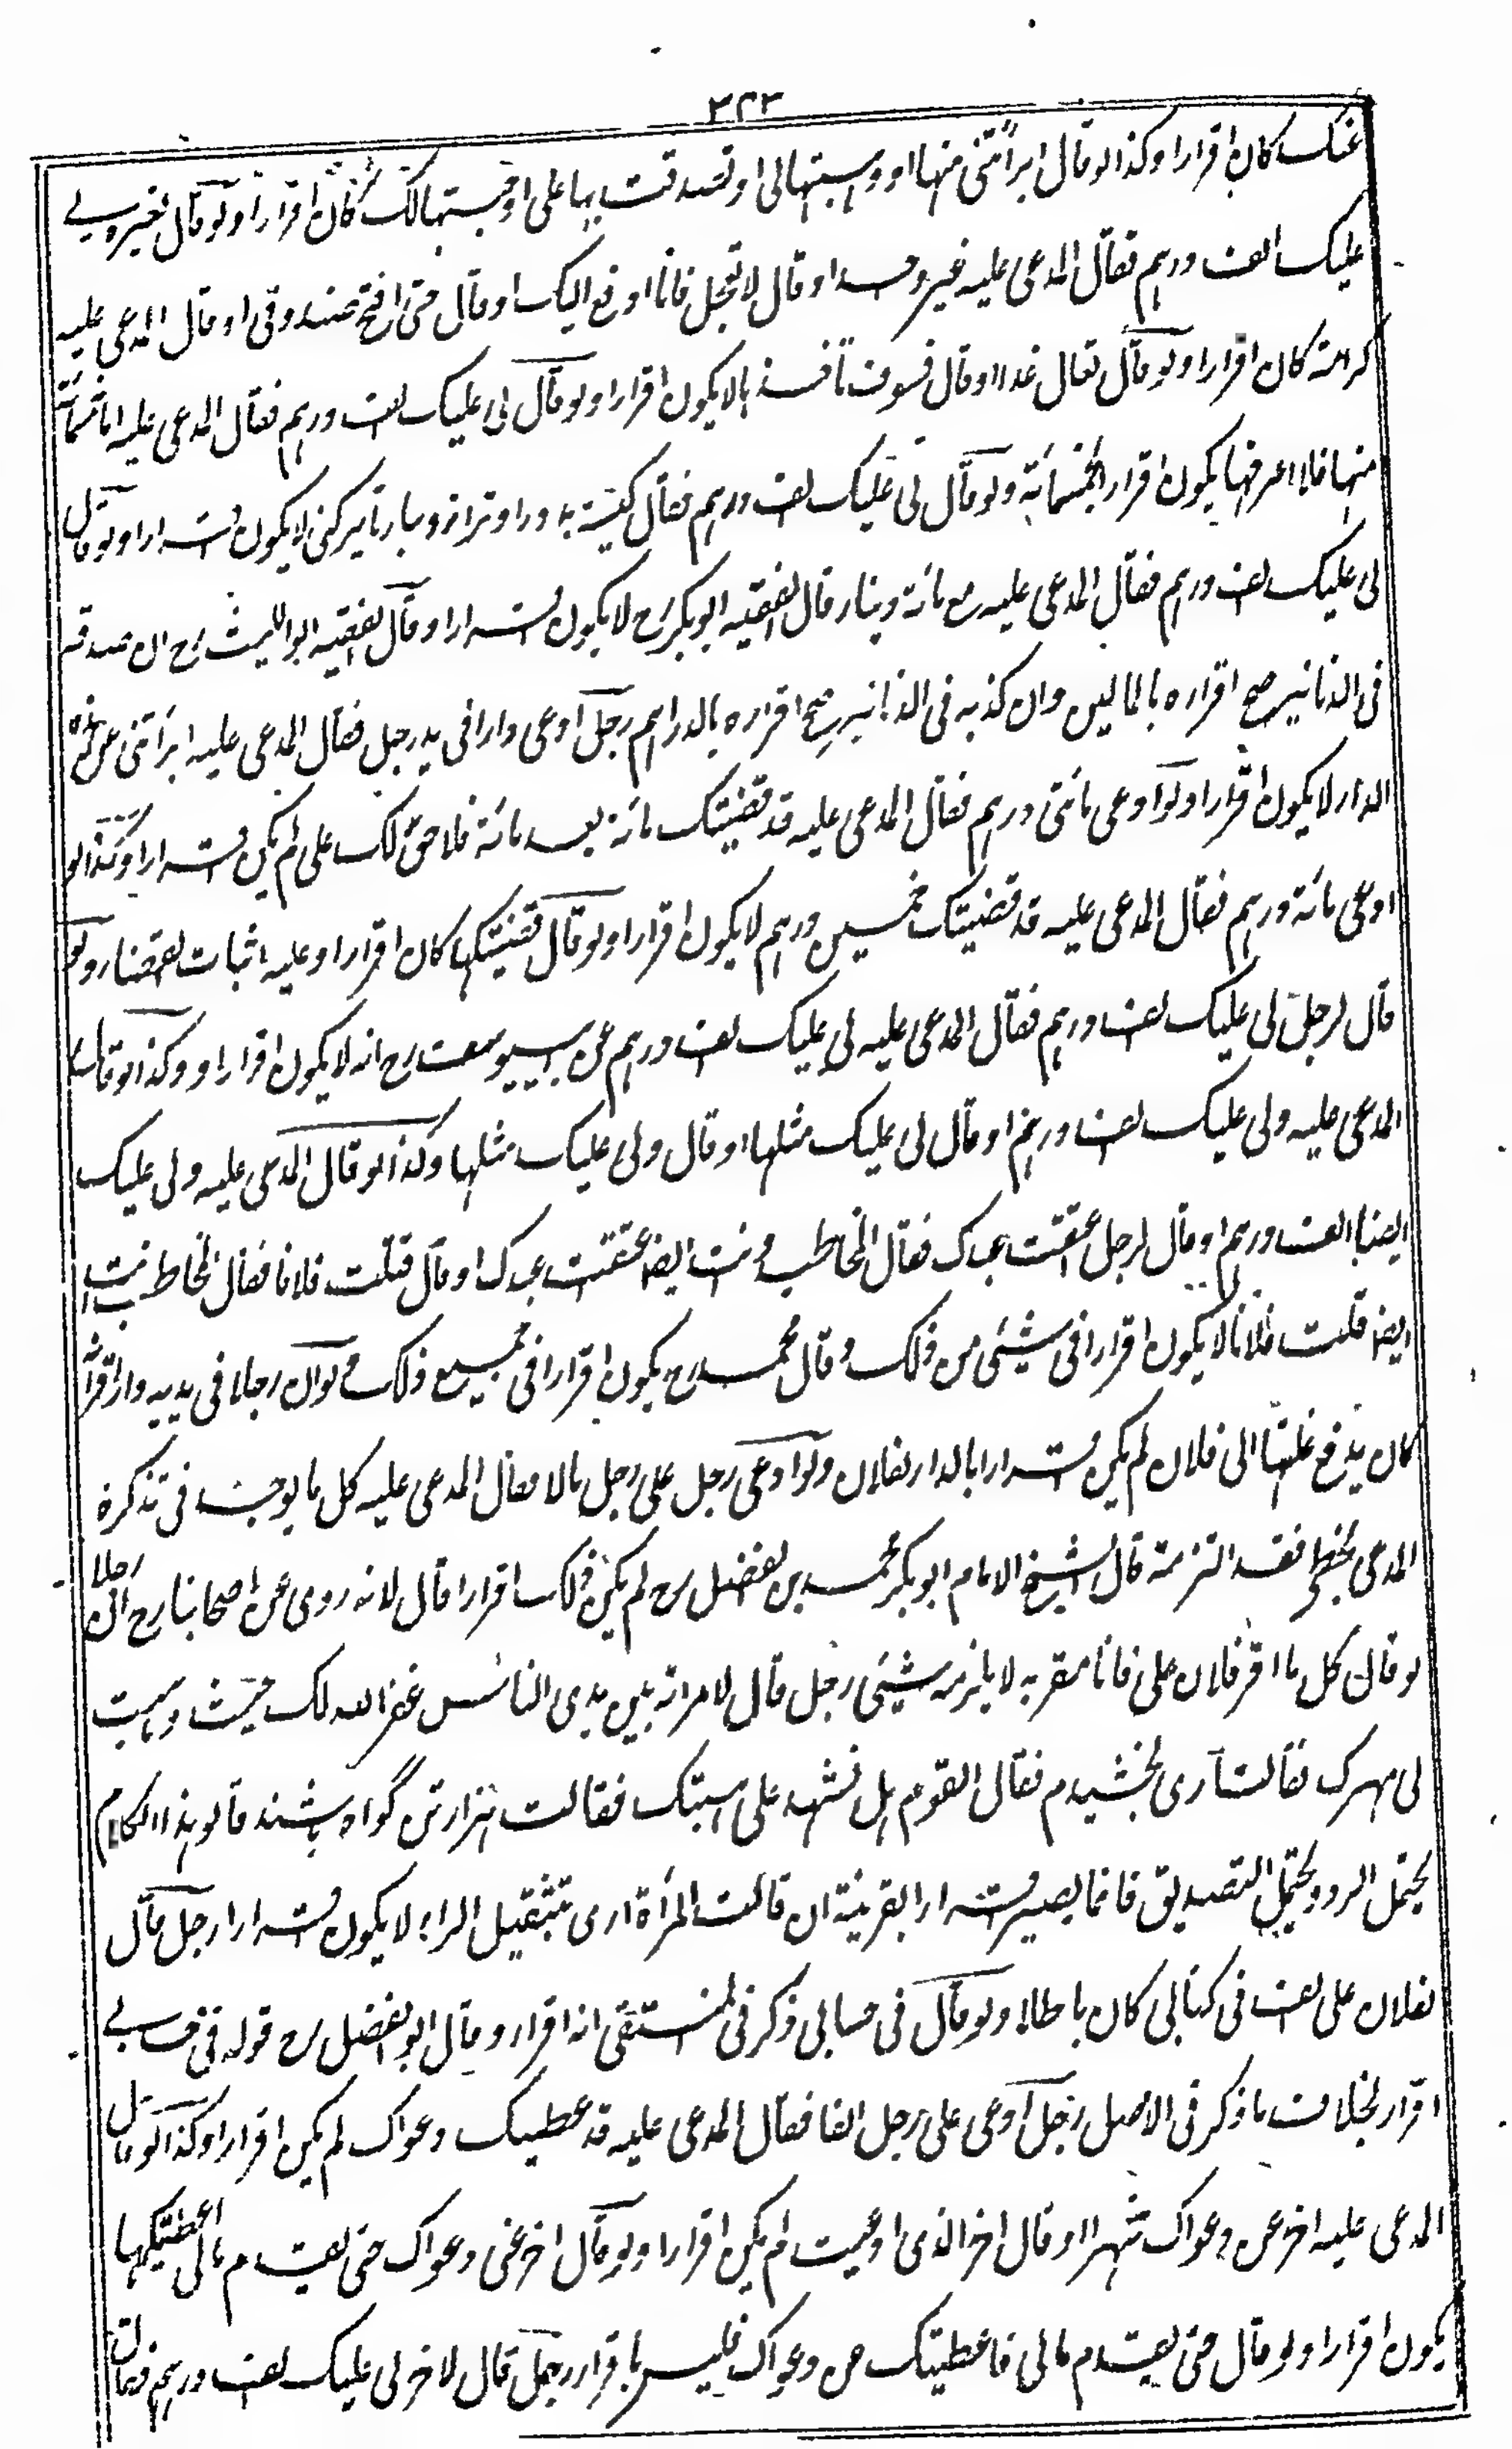 ٣٢٣
عنك كان اقرارا وكذا لو قال ابرأتنى منها او وهبتها لى او تصدقت بها على او حسبتها لك كان اقرارا ولو قال لغيره لى
عليك الف درهم فقال المدعى عليه غير وحدا و قال لا تعجل فانا ادفع اليك او قال حتى افتح صندوقى او قال المدعى عليه
كرامة كان اقرارا ولو قال تعال غدا او قال فسوف تأخذها لا يكون اقرارا ولو قال لى عليك الف درهم فقال المدعى عليه اما خمسمائة
منها فلا اعرفها يكون اقرارا بخمسمائة ولو قال لى عليك الف درهم فقال كيسه بدوز او ترازو بيار تا بركنى لا يكون اقرارا ولو قال
لى عليك الف درهم فقال المدعى عليه مع مائة دينار قال الفقيه ابو بكر رح لا يكون اقرارا وقال الفقيه ابو الليث رح ان صدقه
فى الدنانير صح اقراره بالمالين وان كذبه فى الدنانير صح اقراره بالدراهم رجل ادعى دارا فى يد رجل فقال المدعى عليه ابرأتنى عن هذه
الدار لا يكون اقرارا ولو ادعى مائتى درهم فقال المدعى عليه قد قضيتك مائة بعد مائة فلا حق لك على لم يكن اقرارا وكذا لو
ادعى مائة درهم فقال المدعى عليه قد قضيتك خمسين درهم لا يكون اقرارا ولو قال قضيتكها كان اقرارا وعليه اثبات القضاء ولو
قال لرجل لى عليك الف درهم فقال المدعى عليه لى عليك الف درهم عن ابى يوسف رح انه لا يكون اقرارا و وكذا لو قال
المدعى عليه ولى عليك الف درهم او قال لى عليك مثلها او قال ولى عليك مثلها وكذا لو قال المدعى عليه ولى عليك
ايضا الف درهم او قال لرجل اعتقت عبدك فقال المخاطب وانت ايضا اعتقت عبدك او قال قتلت فلانا فقال المخاطب انت
ايضا قتلت فلانا لا يكون اقرارا فى شيئ من ذلك وقال محمد رح يكون اقرارا فى جميع ذلك ولو ان رجلا فى يديه دار اقر انه
كان يدفع غلتها الى فلان لم يكن اقرارا بالدار لفلان ولو ادعى رجل على رجل مالا فقال المدعى عليه كل ما يوجد فى تذكرة
المدعى بخطى فقد التزمته قال الشيخ الامام ابو بكر محمد بن الفضل رح لم يكن ذلك اقرارا قال لانه روى عن اصحابنا رح ان رجلا
لو قال كل ما اقر فلان على فانا مقر به لا يلزمه شيئ رجل قال لامرأته بين يدى الناس غفر الله لك حيث وهبت
لى مهرك فقالت آرى بخشيدم فقال القوم هل نشهد على هبتك فقالت هزار تن گواه باشند قالوا هذا الكلام
يحتمل الرد ويحتمل التصديق فانما يصير اقرارا بالقرينة ان قالت المرأة ارى بتثقيل الراء لا يكون اقرارا رجل قال
لفلان على الف فى كتابى كان باطلا ولو قال فى حسابى ذكر فى المنتقى انه اقرار وقال ابو الفضل رح قوله فى حسابى
اقرار بخلاف ما ذكر فى الاصل رجل ادعى على رجل الفا فقال المدعى عليه قد اعطيتك دعواك لم يكن اقرارا وكذا لو قال
المدعى عليه اخر عن دعواك شهرا او قال اخر الذى ادعيت لم يكن اقرارا ولو قال اخر عنى دعواك حتى يقدم مالى اعطيتكها
يكون اقرارا ولو قال حتى يقدم مالى فاعطيتك من دعواك فليس باقرار رجل قال لاخر لى عليك الف درهم فقال